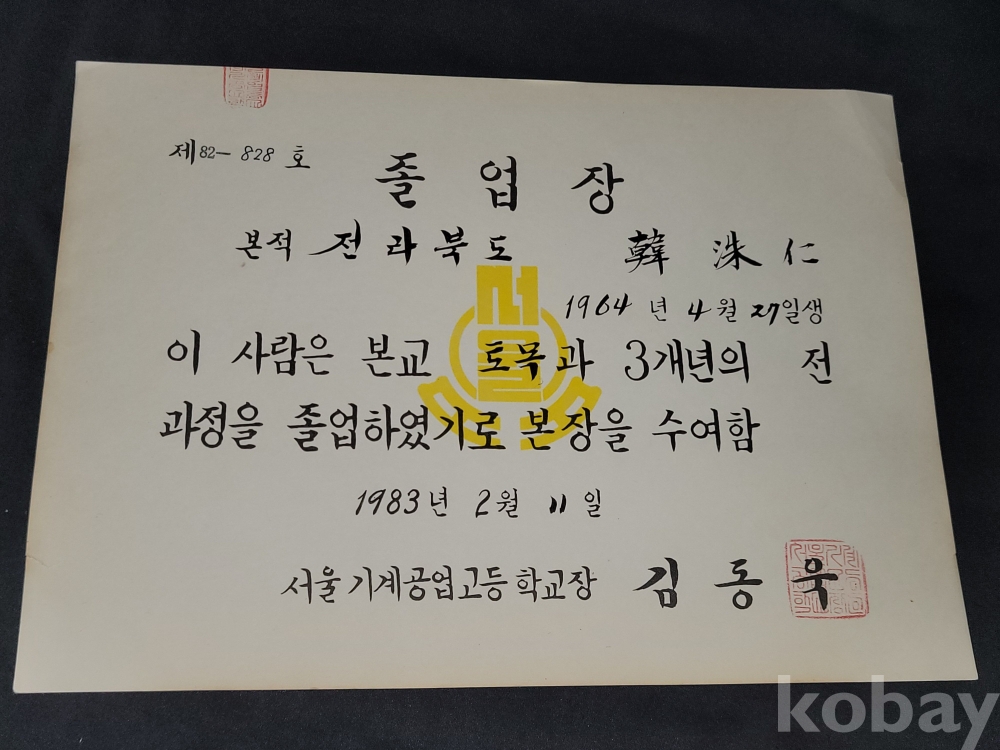 제82-828호
졸업장
본적 전라북도 韓洙仁
1964년 4월 27일생
서울
이 사람은 본교 토목과 3개년의 전
과정을 졸업하였기로 본장을 수여함
1983년 2월 11일
서울기계공업고등학교장 김동욱
kobay